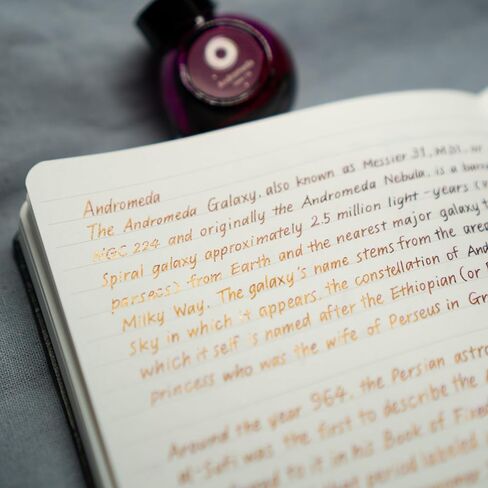 Andromeda
Andromeda
The Andromeda Galaxy, also known as Messier 31, M31, or
NGC 224 and originally the Andromeda Nebula, is a
Spiral galaxy approximately 2.5 million light-years
parsecs) from Earth and the nearest major galaxy
Milky Way. The galaxy's name stems from the area
sky in which it appears, the constellation of
which it self is named after the Ethiopian (or
princess who was the wife of Perseus in
Around the year 964, the Persian
al-Sufi was the first to describe the
to it in his Book of
period labeled